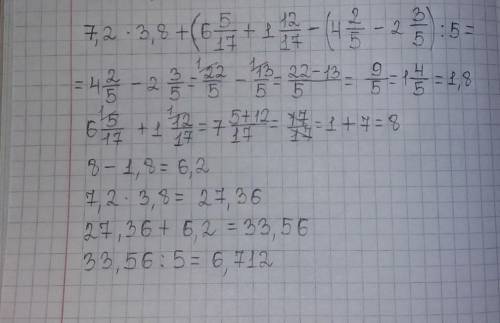 7,2 · 3,8 + (6 5/17 + 1 12/17 - (4 2/5 - 2 3/5) : 5 =
= 4 2/5 - 2 3/5 = 22/5 - 13/5 = 22-13/5 = 9/5 = 1 4/5 = 1,8
6 5/17 + 1 12/17 = 7 5+12/17 = 17/17 = 1 + 7 = 8
8 - 1,8 = 6,2
7,2 · 3,8 = 27,36
27,36 + 6,2 = 33,56
33,56 : 5 = 6,712